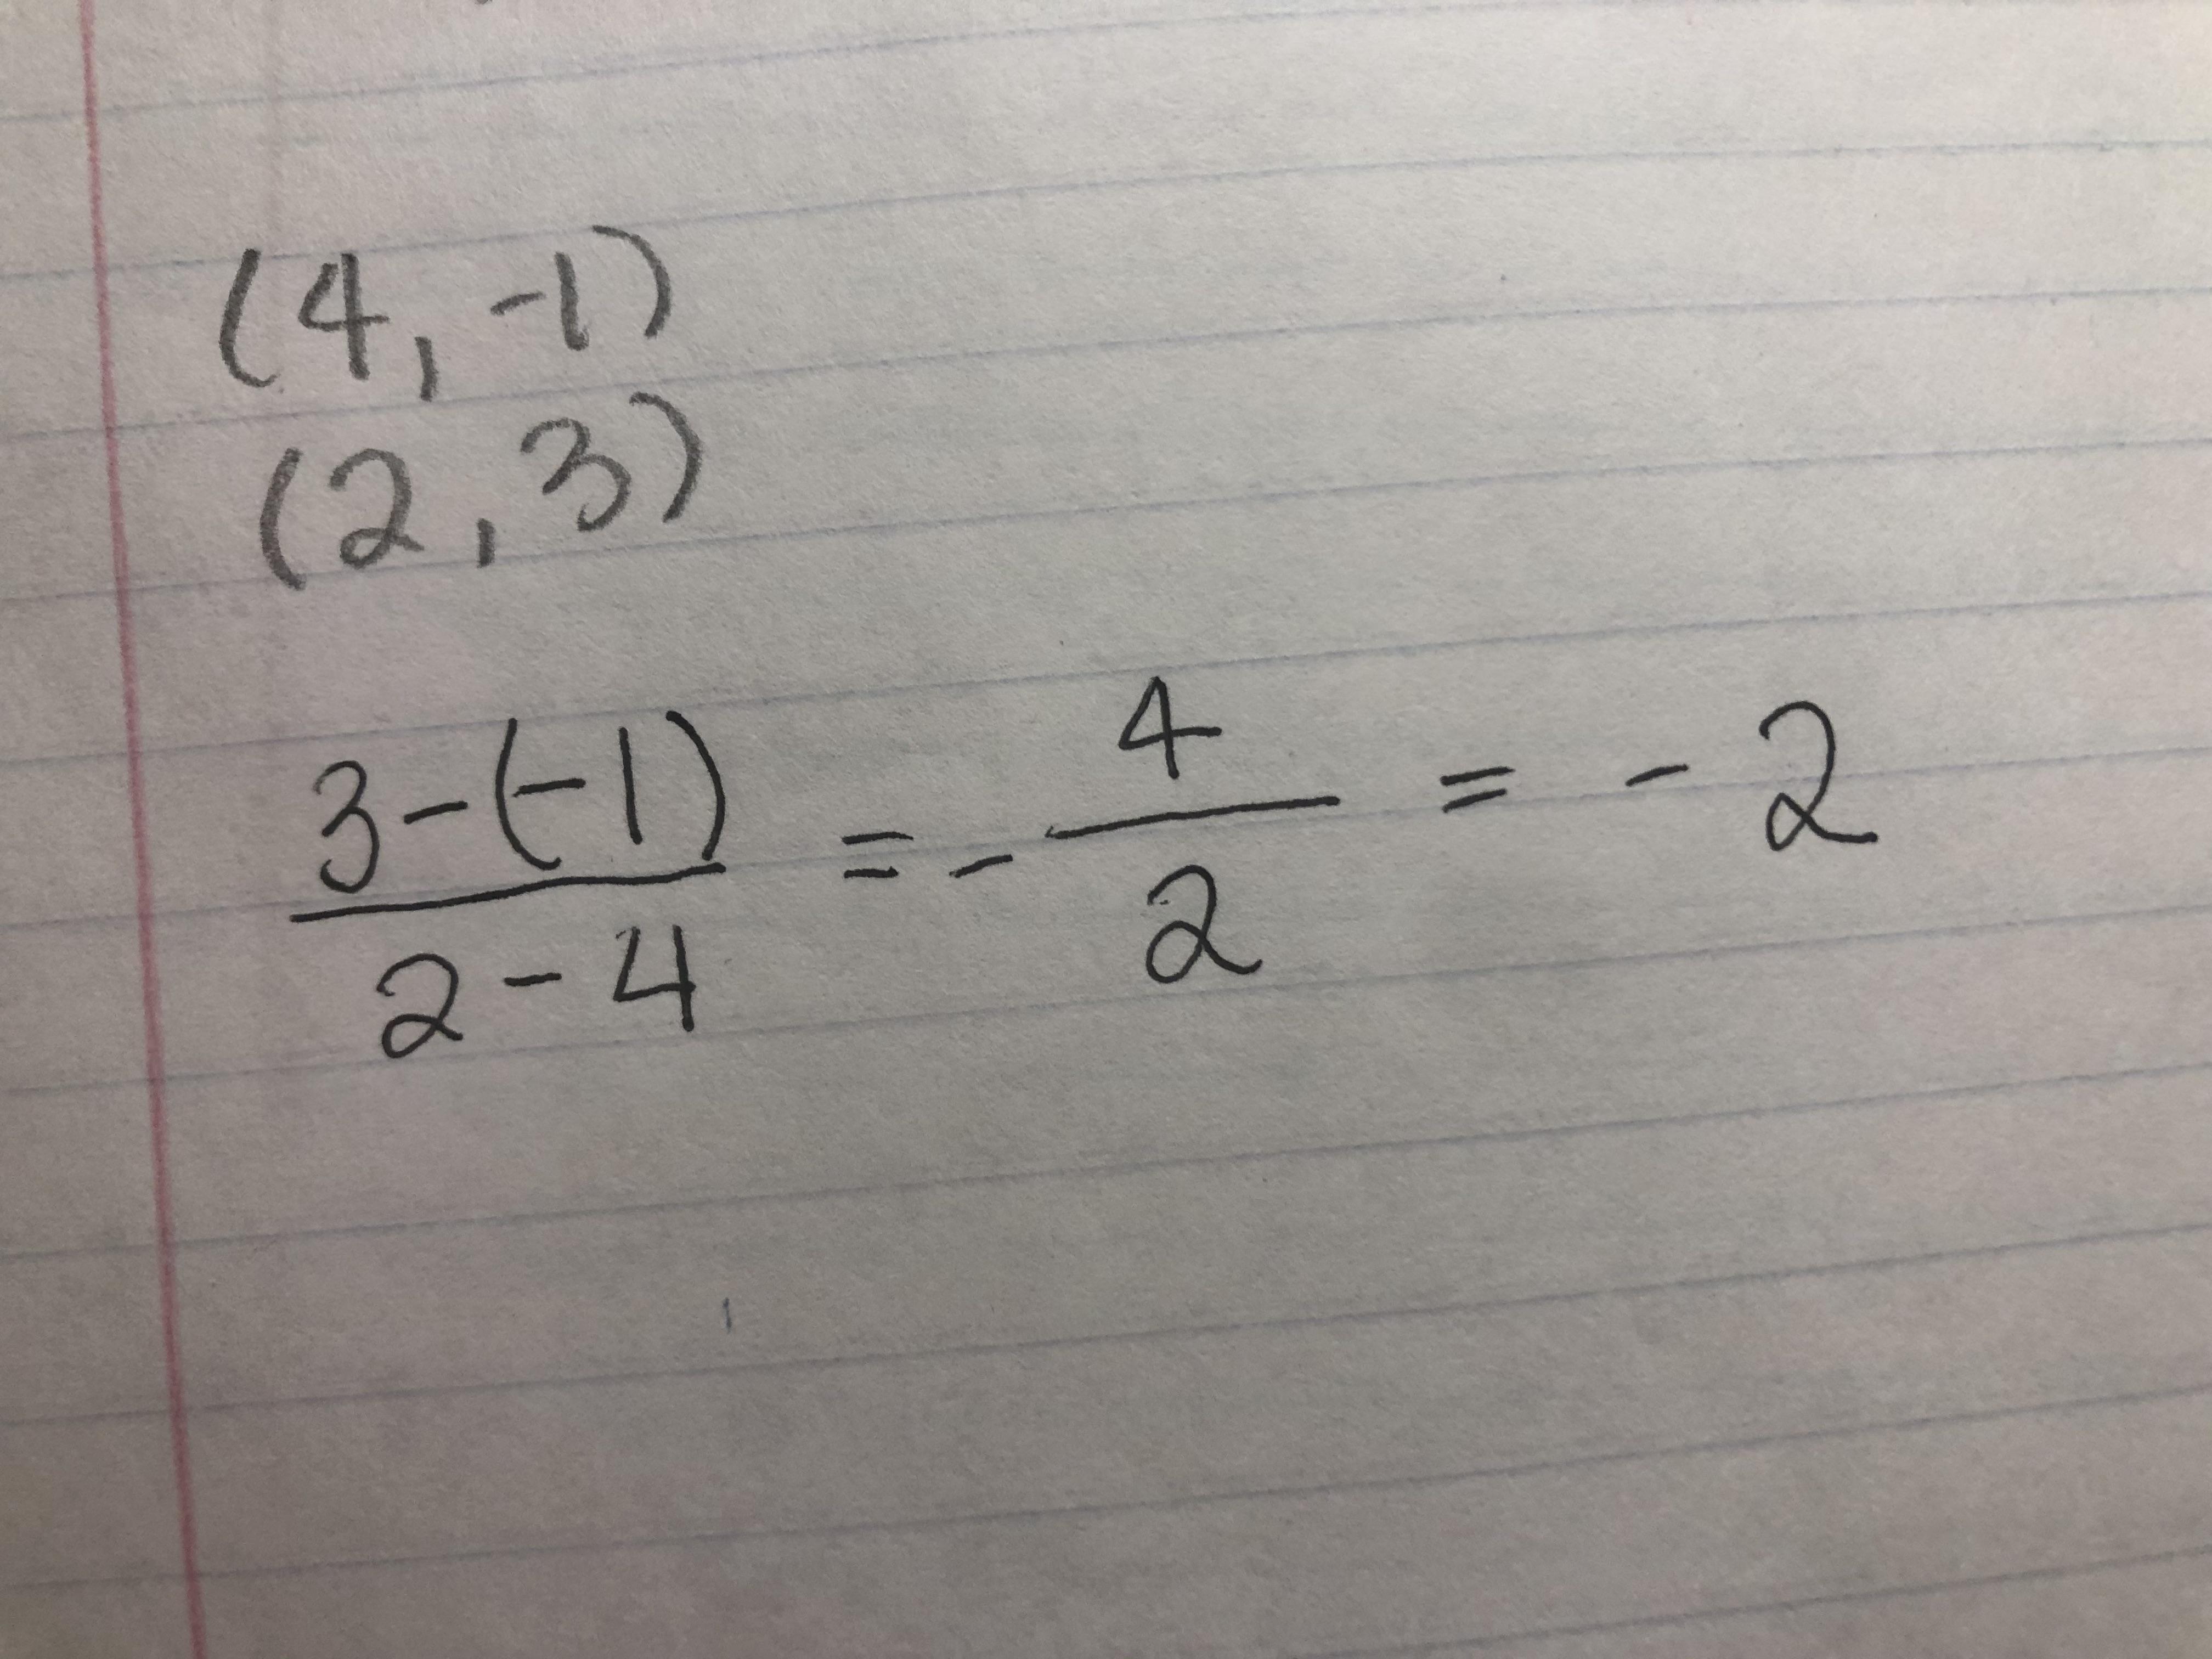 (4, -1)
(2, 3)
3-(-1)/2-4 = - 4/2 = -2